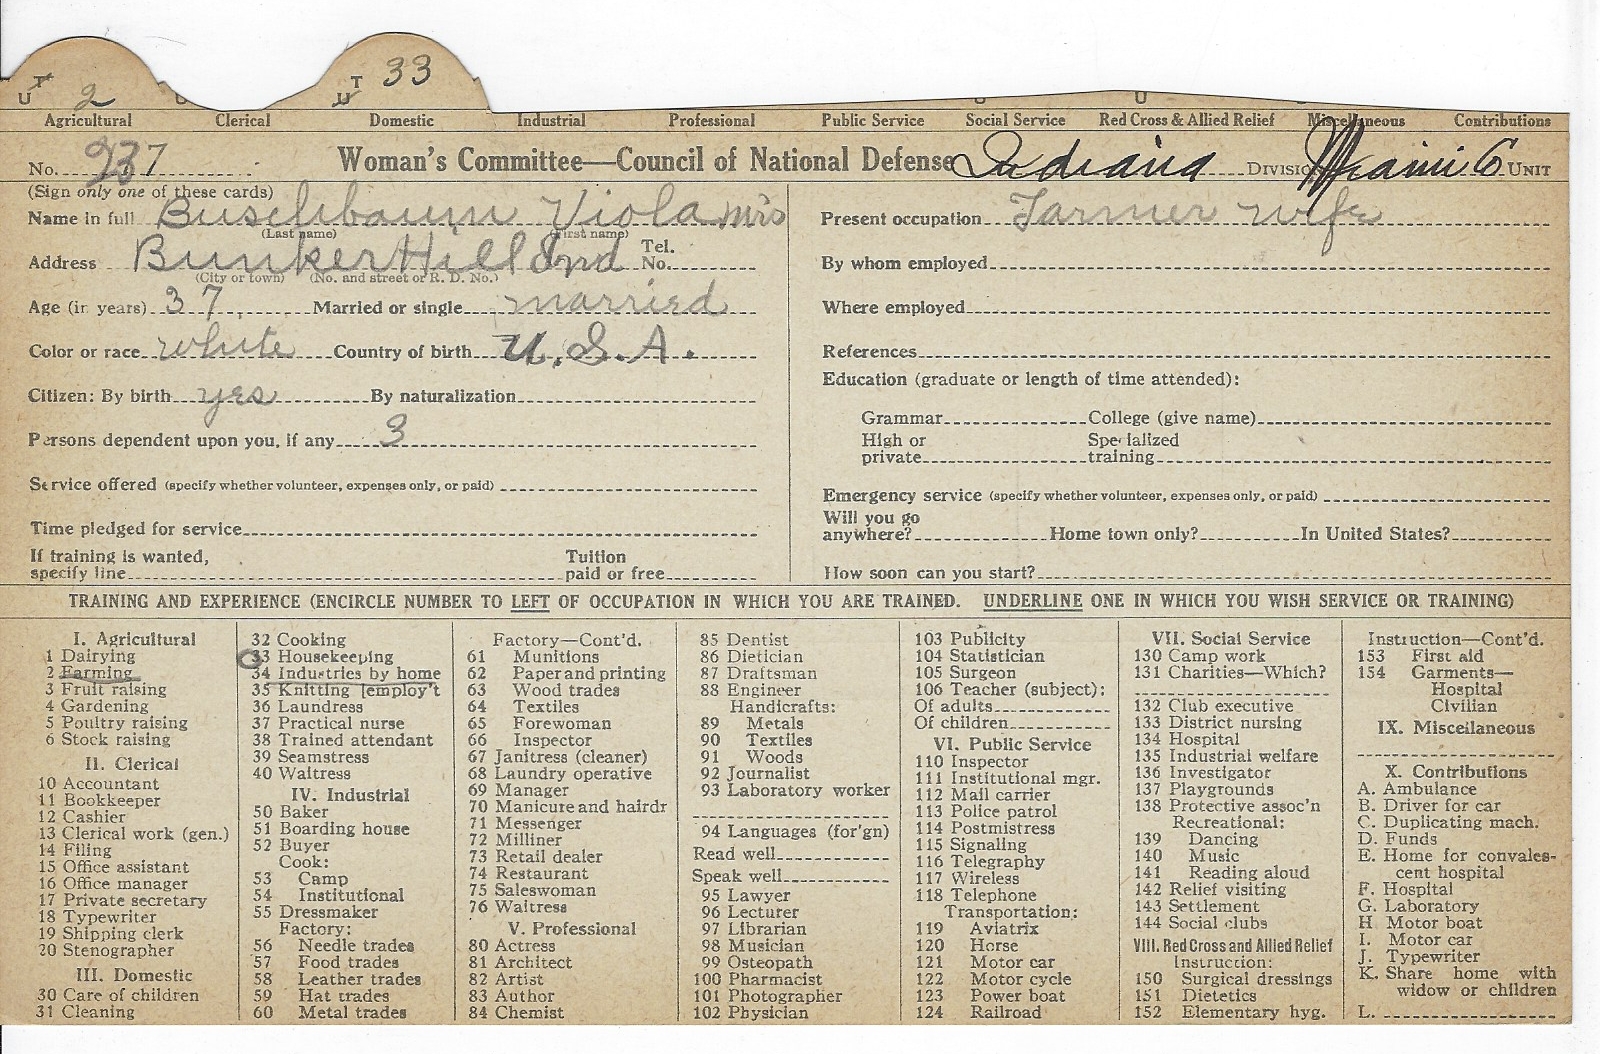 T U 2 T U 33
Agricultural Clerical Domestic Industrial Professional Public Service Social Service Red Cross & Allied Relief Miscellaneous Contributions
No. 237 Woman's Committee—Council of National Defense Indiana Division Miami Co Unit
(Sign only one of these cards)
Name in full Buschbaum Viola Mrs
(Last name) (First name)
Address Bunker Hill Ind Tel. No.
(City or town) (No. and street or R. D. No.)
Age (in years) 37 Married or single married
Color or race white Country of birth U.S.A.
Citizen: By birth yes By naturalization
Persons dependent upon you, if any 3
Service offered (specify whether volunteer, expenses only, or paid)
Time pledged for service
If training is wanted, specify line Tuition paid or free
Present occupation Farmer wife
By whom employed
Where employed
References
Education (graduate or length of time attended):
Grammar College (give name)
High or private Specialized training
Emergency service (specify whether volunteer, expenses only, or paid)
Will you go anywhere? Home town only? In United States?
How soon can you start?
TRAINING AND EXPERIENCE (ENCIRCLE NUMBER TO LEFT OF OCCUPATION IN WHICH YOU ARE TRAINED. UNDERLINE ONE IN WHICH YOU WISH SERVICE OR TRAINING)
I. Agricultural
1 Dairying
2 Farming
3 Fruit raising
4 Gardening
5 Poultry raising
6 Stock raising
II. Clerical
10 Accountant
11 Bookkeeper
12 Cashier
13 Clerical work (gen.)
14 Filing
15 Office assistant
16 Office manager
17 Private secretary
18 Typewriter
19 Shipping clerk
20 Stenographer
III. Domestic
30 Care of children
31 Cleaning
32 Cooking
33 Housekeeping
34 Industries by home
35 Knitting [employ't
36 Laundress
37 Practical nurse
38 Trained attendant
39 Seamstress
40 Waitress
IV. Industrial
50 Baker
51 Boarding house
52 Buyer
Cook:
53 Camp
54 Institutional
55 Dressmaker
Factory:
56 Needle trades
57 Food trades
58 Leather trades
59 Hat trades
60 Metal trades
Factory—Cont'd.
61 Munitions
62 Paper and printing
63 Wood trades
64 Textiles
65 Forewoman
66 Inspector
67 Janitress (cleaner)
68 Laundry operative
69 Manager
70 Manicure and hairdr
71 Messenger
72 Milliner
73 Retail dealer
74 Restaurant
75 Saleswoman
76 Waitress
V. Professional
80 Actress
81 Architect
82 Artist
83 Author
84 Chemist
85 Dentist
86 Dietician
87 Draftsman
88 Engineer
Handicrafts:
89 Metals
90 Textiles
91 Woods
92 Journalist
93 Laboratory worker
94 Languages (for'gn)
Read well
Speak well
95 Lawyer
96 Lecturer
97 Librarian
98 Musician
99 Osteopath
100 Pharmacist
101 Photographer
102 Physician
103 Publicity
104 Statistician
105 Surgeon
106 Teacher (subject):
Of adults
Of children
VI. Public Service
110 Inspector
111 Institutional mgr.
112 Mail carrier
113 Police patrol
114 Postmistress
115 Signaling
116 Telegraphy
117 Wireless
118 Telephone
Transportation:
119 Aviatrix
120 Horse
121 Motor car
122 Motor cycle
123 Power boat
124 Railroad
VII. Social Service
130 Camp work
131 Charities—Which?
132 Club executive
133 District nursing
134 Hospital
135 Industrial welfare
136 Investigator
137 Playgrounds
138 Protective assoc'n
Recreational:
139 Dancing
140 Music
141 Reading aloud
142 Relief visiting
143 Settlement
144 Social clubs
VIII. Red Cross and Allied Relief
Instruction:
150 Surgical dressings
151 Dietetics
152 Elementary hyg.
Instruction—Cont'd.
153 First aid
154 Garments—
Hospital
Civilian
IX. Miscellaneous
X. Contributions
A. Ambulance
B. Driver for car
C. Duplicating mach.
D. Funds
E. Home for convales-
cent hospital
F. Hospital
G. Laboratory
H Motor boat
I. Motor car
J. Typewriter
K. Share home with
widow or children
L.